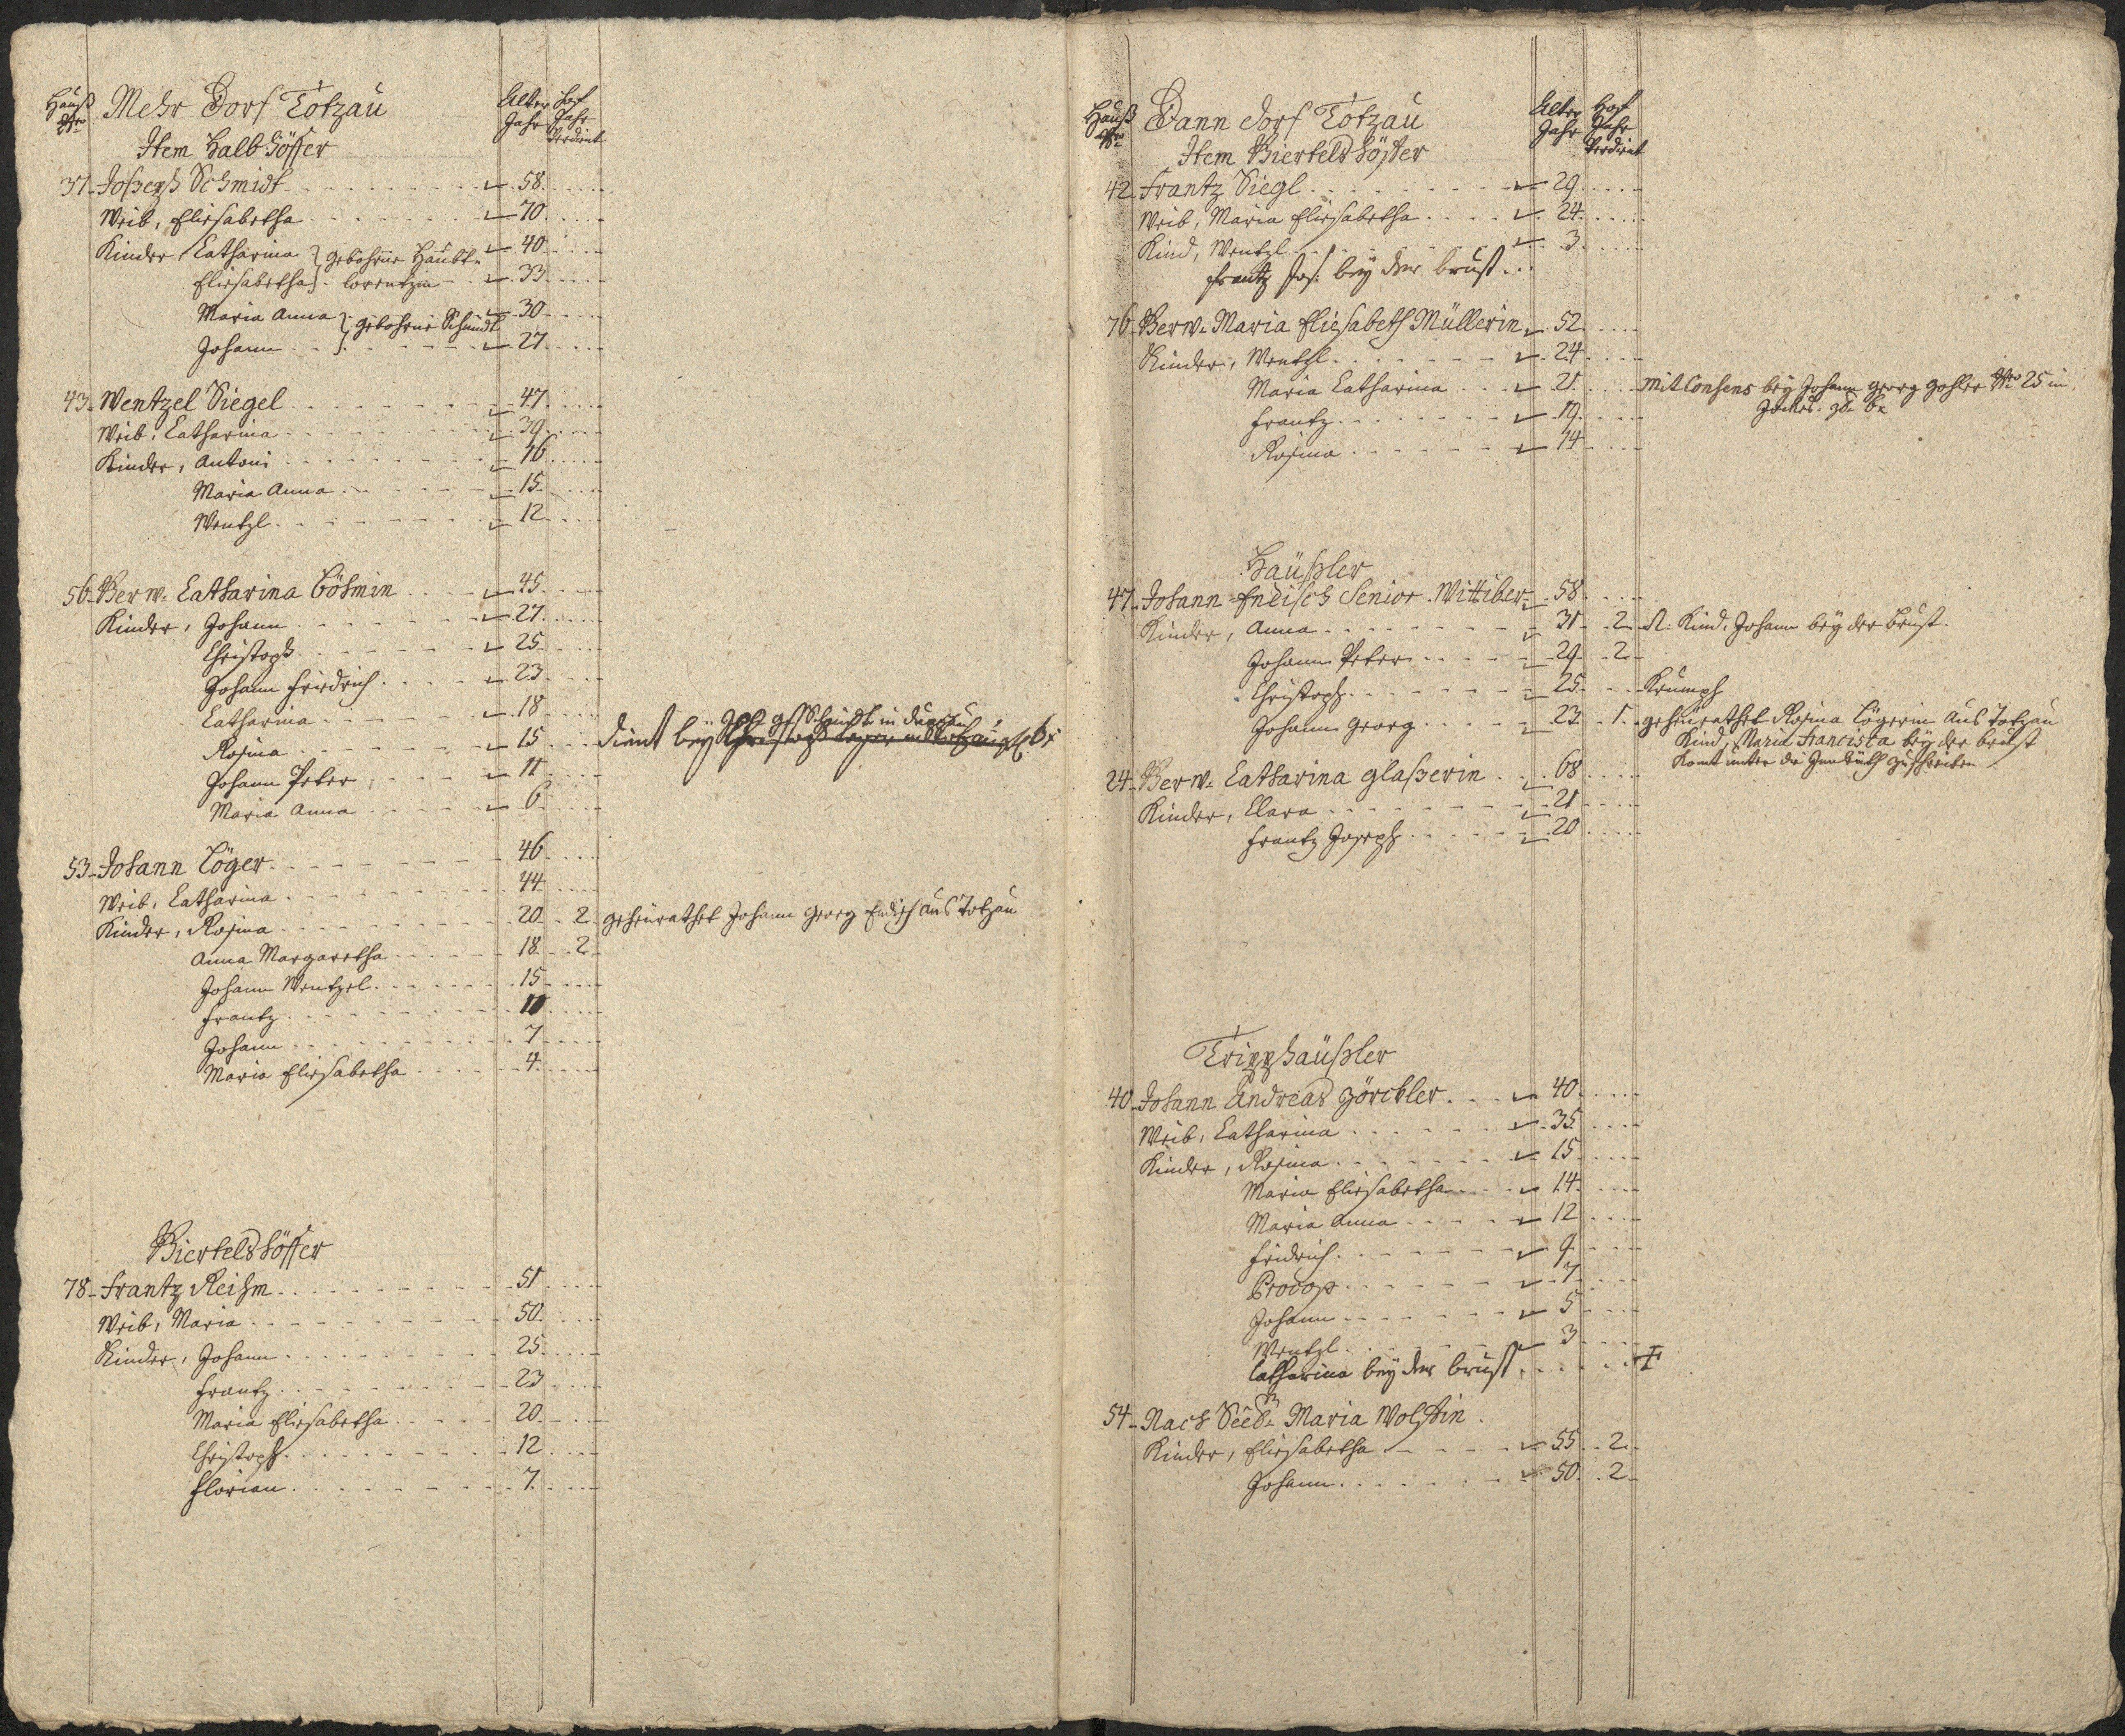 Hauß Nro Mehr Dorf Totzau Alter Jahr Hof Jahr Verdient
Item Halb Höffer
37 Joseph Schmidt 58
Weib, Elisabetha 70
Kinder Catharina } gebohrne Haubt- 40
Elisabetha } lorentzin 33
Maria Anna } gebohrne Schmidt 30
Johann 27
43 Wentzel Siegel 47
Weib, Catharina 39
Kinder, Antoni 16
Maria Anna 15
Wentzl 12
56 Verw. Catharina Böhmin 45
Kinder, Johann 27
Christoph 25
Johann Friedrich 23
Catharina 18
Rosina 15 dient bey Schmidt in
Johann Peter 11
Maria Anna 6
53 Johann Töger 46
Weib, Catharina 44
Kinder, Rosina 20 2 geheurathet Johann Georg Endisch aus Totzau
Anna Margaretha 18 2
Johann Wentzel 15
Frantz 10
Johann 7
Maria Elisabetha 4
Viertelshöffer
78 Frantz Reihm 51
Weib, Maria 50
Kinder, Johann 25
Frantz 23
Maria Elisabetha 20
Christoph 12
Florian 7
Hauß Nro Dann dorf Totzau Alter Jahr Hof Jahr Verdient
Item Viertelshöffer
42 Frantz Siegl 29
Weib, Maria Elisabetha 24
Kind, Wentzl 3
Frantz Jos: bey der brust
76 Verw. Maria Eliesabeth Müllerin 52
Kinder, Wentzl 24
Maria Catharina 21 mit Consens bey Johann Georg Nro 25 in
Frantz 19
Rosina 14
Häußler
47 Johann Endisch Senior Wittiber 58
Kinder, Anna 31 2 Kind, Johann bey der brust
Johann Peter 29 2
Christoph 25 Krumph
Johann Georg 23 1 geheurathet Rosina Tögerin aus Totzau
Kind, Maria Francisca bey der brust
Komt unter die zuschreiben
24 Verw. Catharina Glaßerin 68
Kinder, Clara 21
Frantz Joseph 20
Tripphäußler
40 Johann Andreas Zörckler 40
Weib, Catharina 35
Kinder, Rosina 15
Maria Elisabetha 14
Maria Anna 12
Fridrich 9
Procop 7
Johann 5
Wentzl 3
Catharina bey der brust
54 Nach Seel. Maria Wolffin
Kinder, Elisabetha 55 2
Johann 50 2